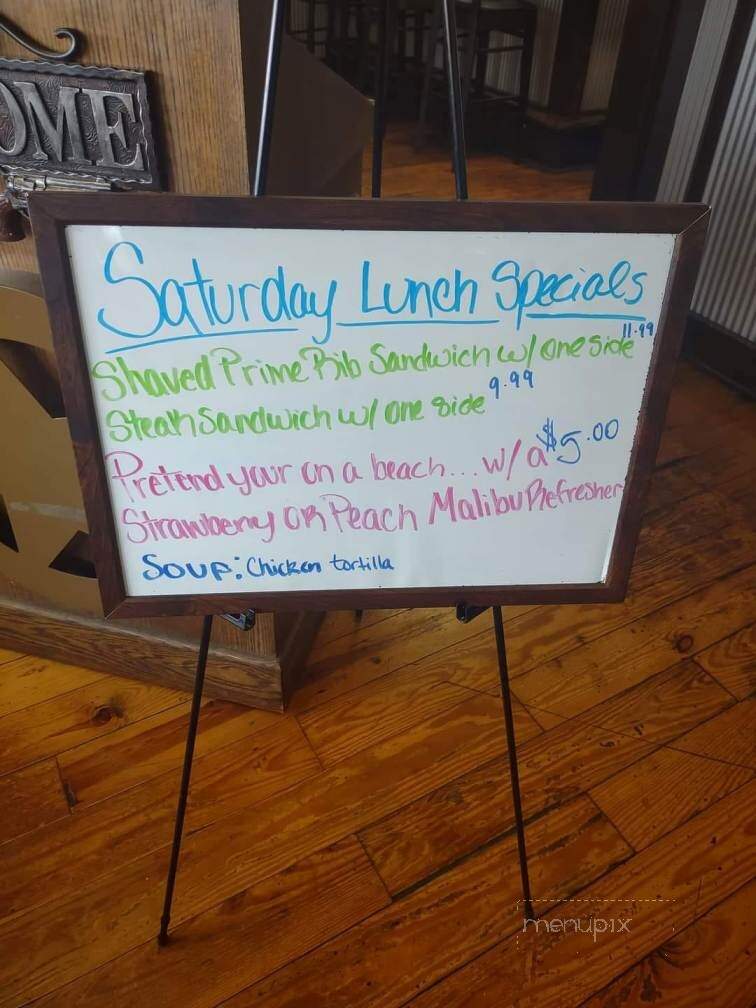 OME
Saturday Lunch Specials
Shaved Prime Rib Sandwich w/ one side 11.99
Steak Sandwich w/ one side 9.99
Pretend your on a beach... w/ a $5.00
Strawberry or Peach Malibu Refresher
Soup: Chicken tortilla
menupix